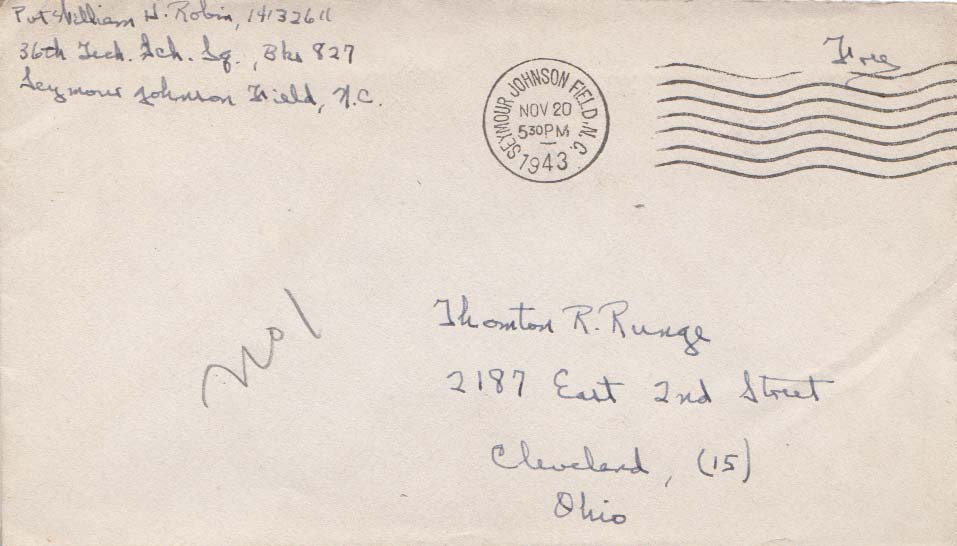 Pvt William H. Robin, 14132611
36th Tech. Sch. Sq., Bks 827
Seymour Johnson Field, N.C.
Free
SEYMOUR JOHNSON FIELD, N.C.
NOV 20
530 PM
1943
no 1
Thornton R. Runge
2187 East 2nd Street
Cleveland, (15)
Ohio